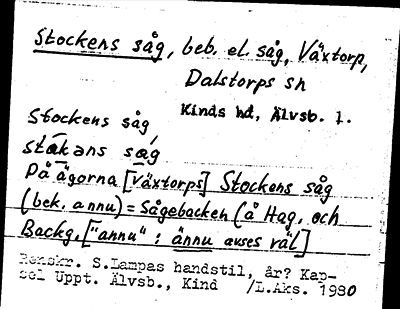 Stockens såg, beb. el. såg, Växtorp,
Dalstorps sn
Kinds hd, Älvsb. l.
Stockens såg
ståkans såg
På ägorna [Växtorps] Stockens såg
(bek. annu) = Sågebacken (å Hag. och
Backg. ["annu" : ännu avses väl]
Renskr. S.Lampas handstil, år? Kap-
sel Uppt. Älvsb., Kind /L.Aks. 1980